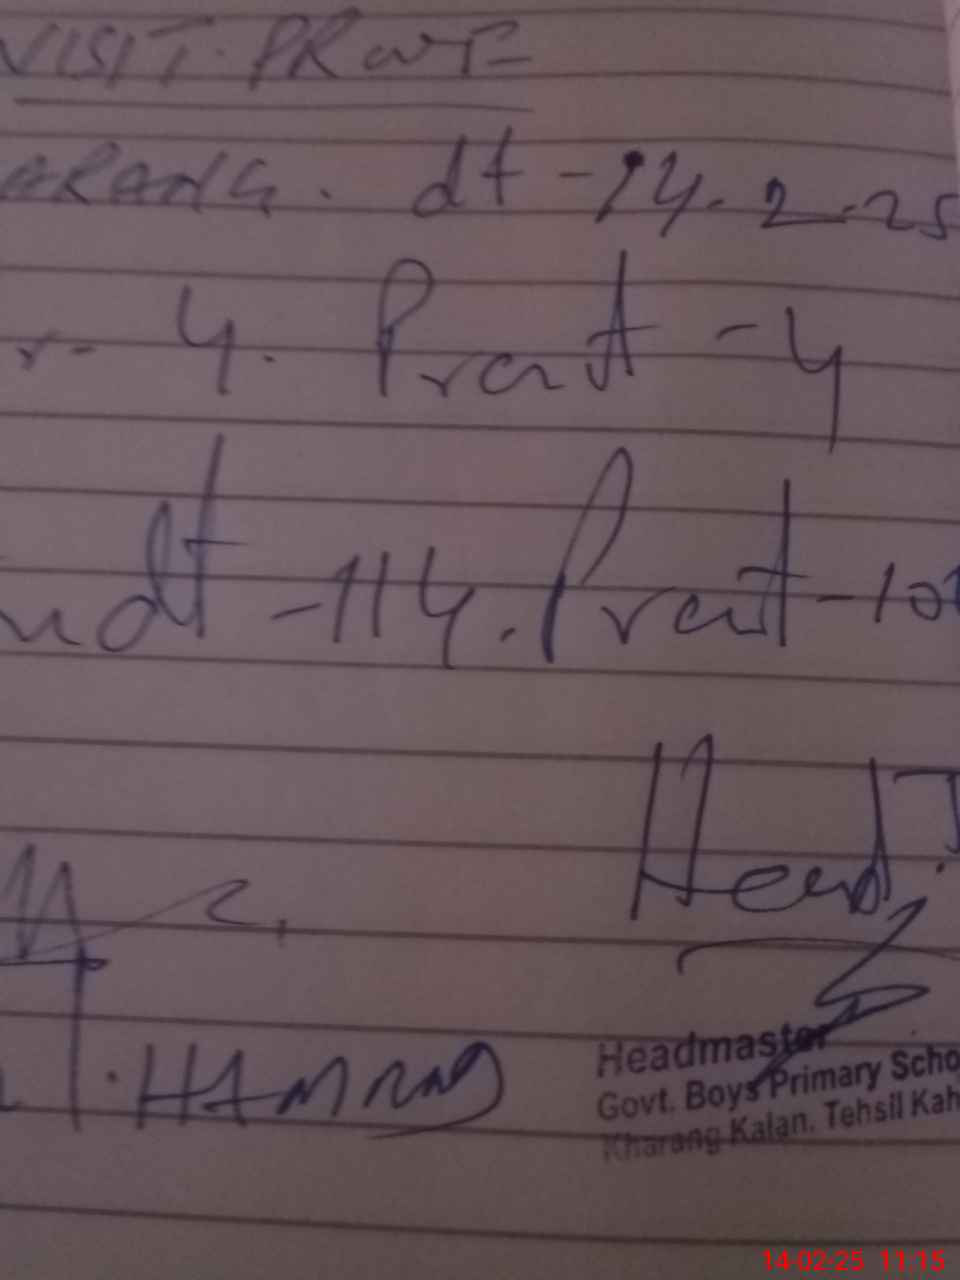 VISIT. PRAWF
ARANG. dt -14.2.25
r- 4. Prent -4
udt -114. Prent -10
Head.T
Headmaster
Govt. Boys Primary Scho
Kharang Kalan. Tehsil Kah
14-02-25 11:15